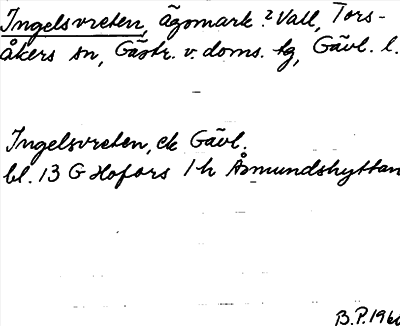 Ingelsvreten, ägomark? Vall, Tors-
åkers sn, Gästr. v. doms. tg, Gävl. l.
Ingelsvreten, ek Gävl.
bl. 13 G Hofors 1 h Åsmundshyttan
B.P. 196